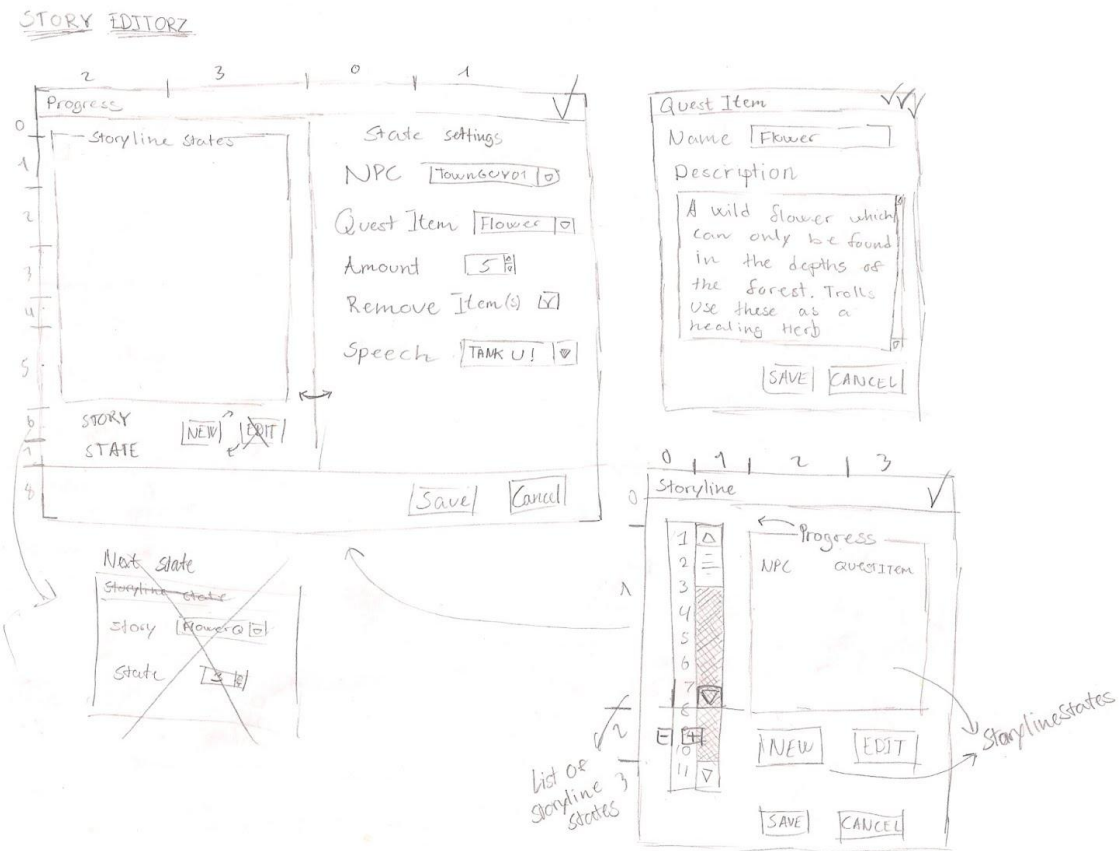 STORY EDITORZ
2 3 0 1
Progress
0
1
2
3
4
5
6
7
8
Storyline states
STORY
STATE
NEW
EDIT
State settings
NPC TownGuy01
Quest Item Flower
Amount 5
Remove Item(s)
Speech TANK U!
Save Cancel
Quest Item
Name Flower
Description
A wild flower which
can only be found
in the depths of
the forest. Trolls
use these as a
healing Herb
SAVE CANCEL
Next state
Storyline state
Story FlowerQ
State 3
0 1 2 3
Storyline
0
1
2
3
1
2
3
4
5
6
7
10
11
Progress
NPC QUESTITEM
NEW EDIT
SAVE CANCEL
StorylineStates
List of
storyline
states